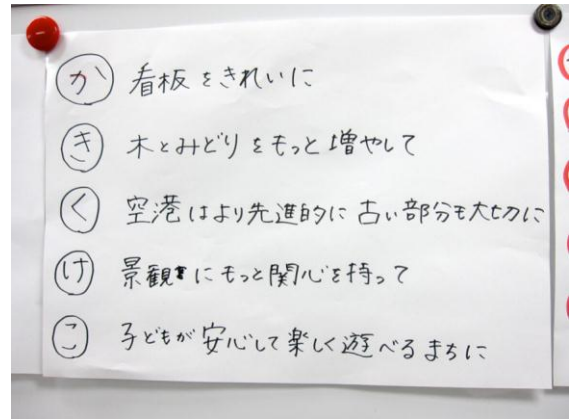 か 看板をきれいに
き 木とみどりをもっと増やして
く 空港はより先進的に古い部分も大切に
け 景観にもっと関心を持って
こ 子どもが安心して楽しく遊べるまちに